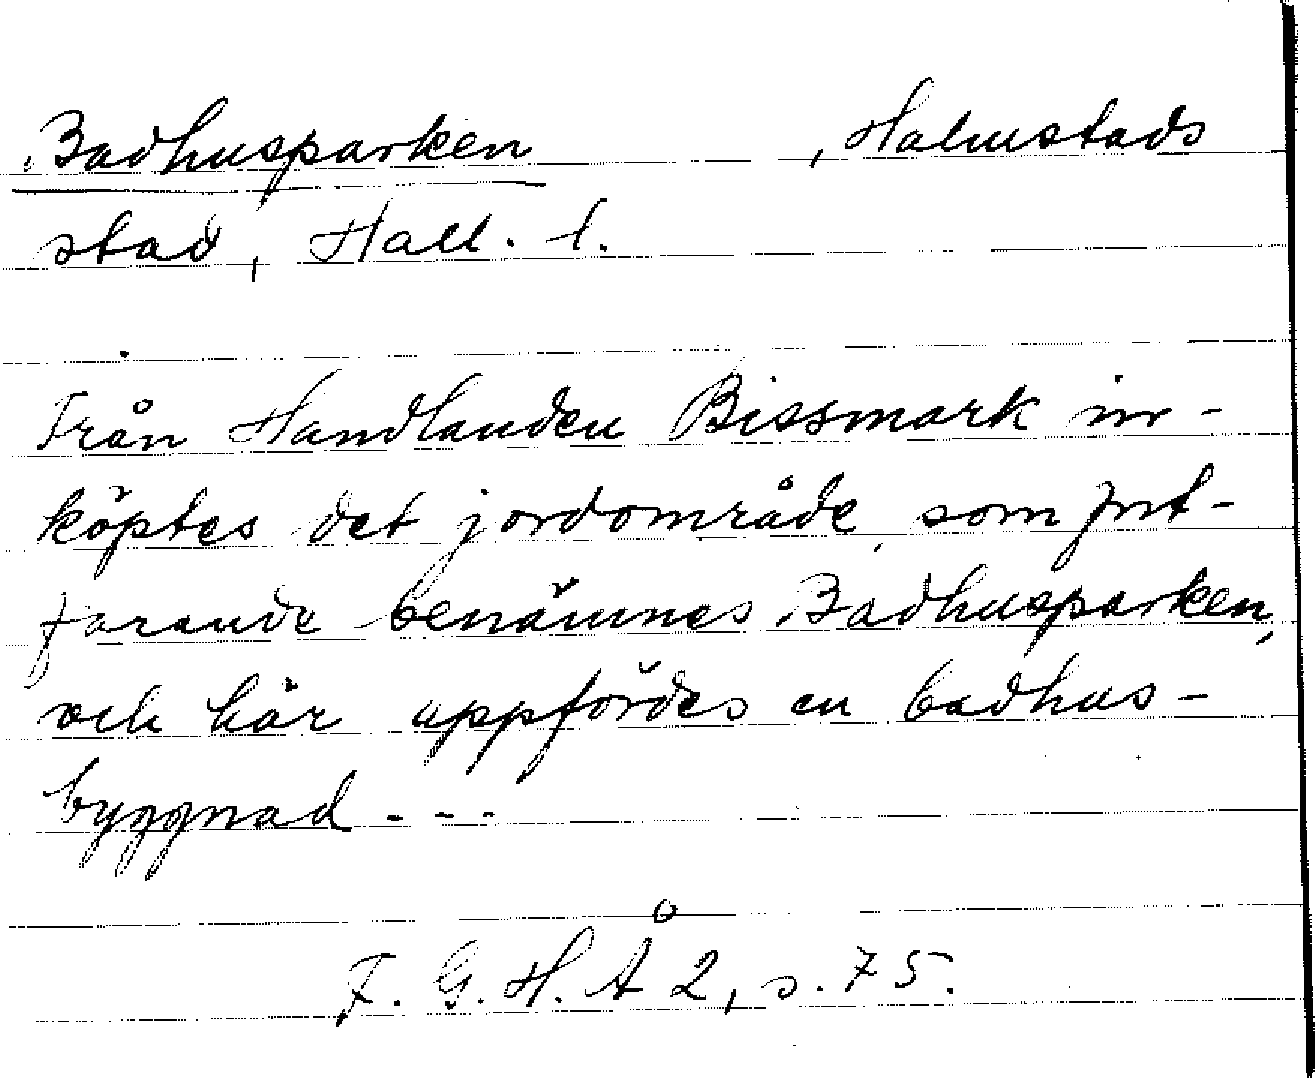 Badhusparken , Halmstads
stad, Hall. l.
Från Handlanden Bissmark in-
köptes det jordområde, som fort-
farande benämnes Badhusparken,
och här uppfördes en badhus-
byggnad - - -
F. G. H. Å 2, s. 75.